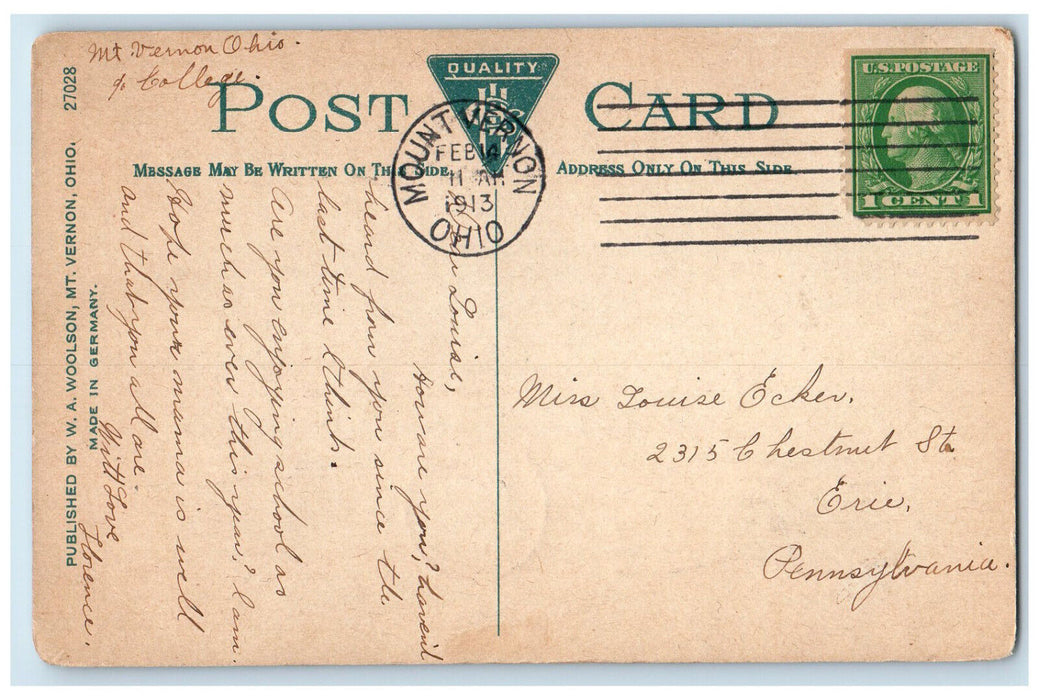 Mt Vernon Ohio.
% College.
POST CARD
QUALITY
MESSAGE MAY BE WRITTEN ON THIS SIDE
ADDRESS ONLY ON THIS SIDE
MOUNT VERNON
FEB 14
11 AM
1913
OHIO
U.S. POSTAGE
1 CENT 1
Louise,
How are you? Haven't
heard from you since the
last time I think.
Are you enjoying school as
much as ever this year? I am.
Hope your mama is well
and that you all are.
With Love
Florence.
Miss Louise Ecker.
2315 Chestnut St
Erie,
Pennsylvania.
PUBLISHED BY W. A. WOOLSON, MT. VERNON, OHIO. 27028
MADE IN GERMANY.